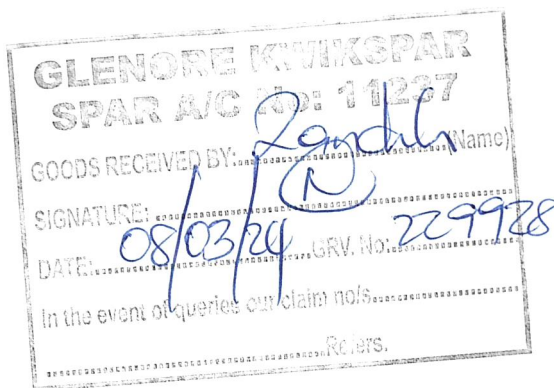 GLENORE KWIKSPAR
SPAR A/C No: 11237
GOODS RECEIVED BY: Zandile (Name)
SIGNATURE: N
DATE: 08/03/24 GRV. No: 229928
In the event of queries our claim no/s
Refers.